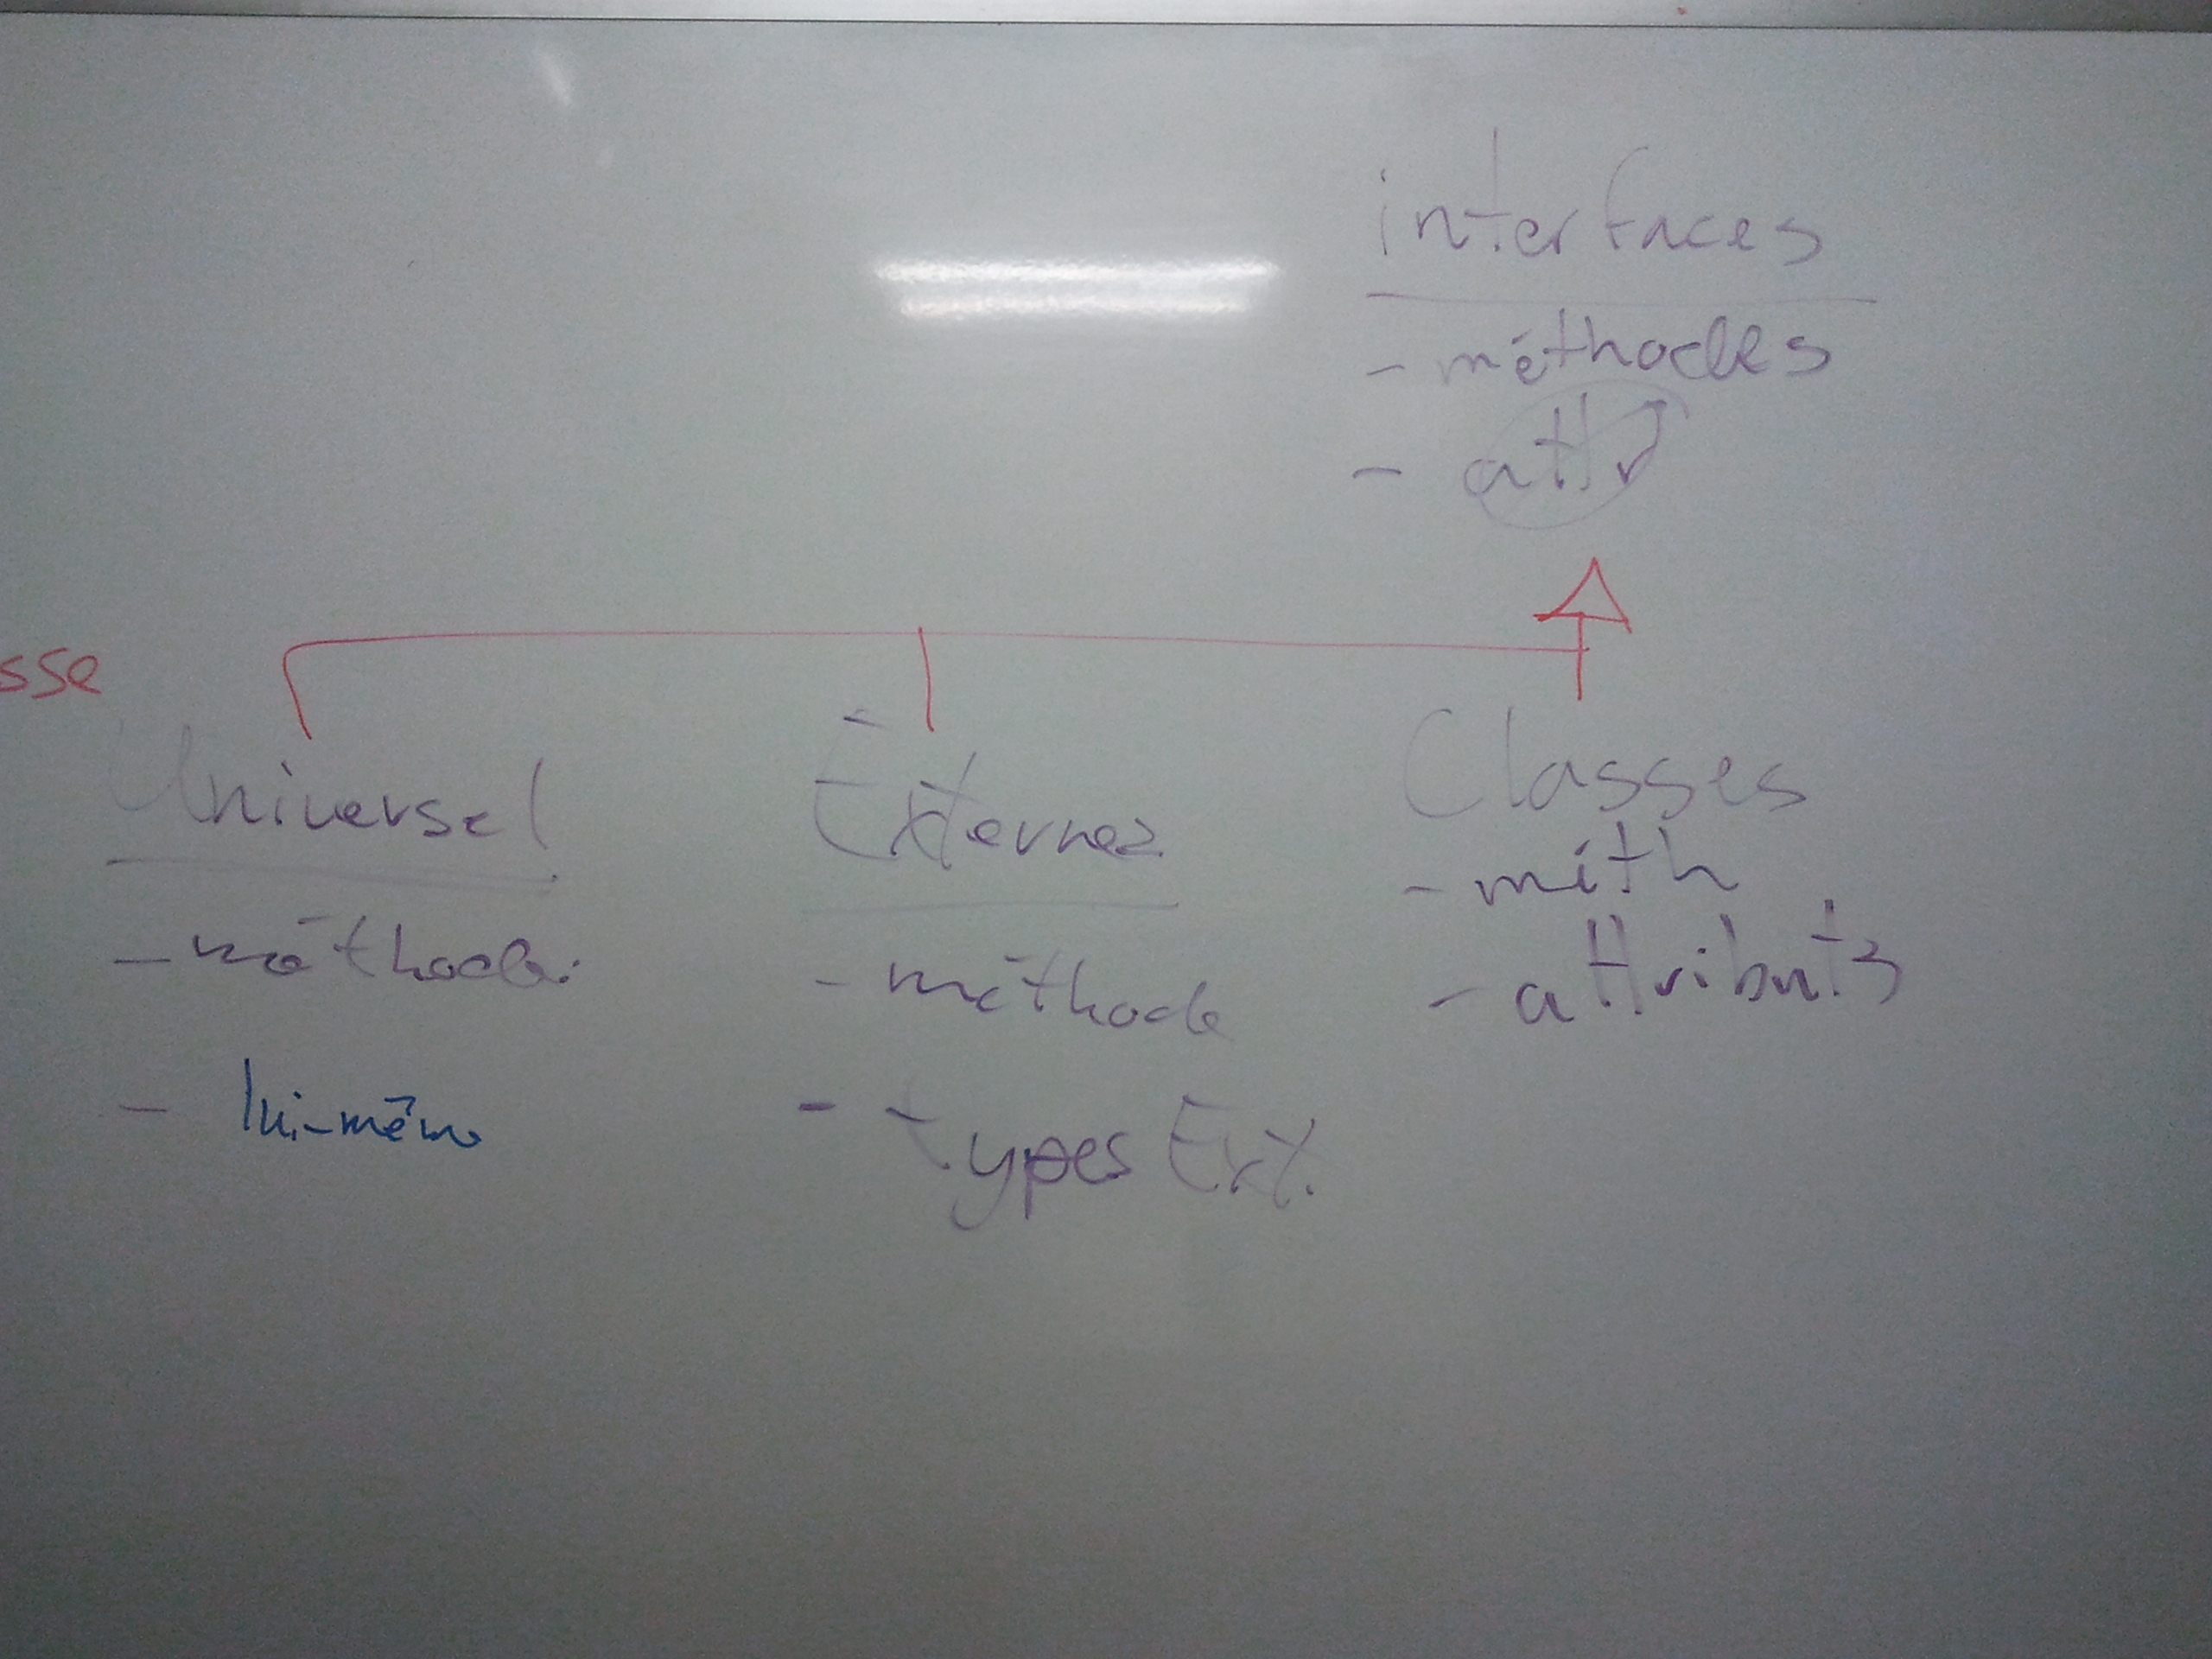 interfaces
- méthodes
- attr
sse
Universel
- méthode.
- lui-même
Externes
- méthode
- types Ext.
Classes
- méth
- attributs